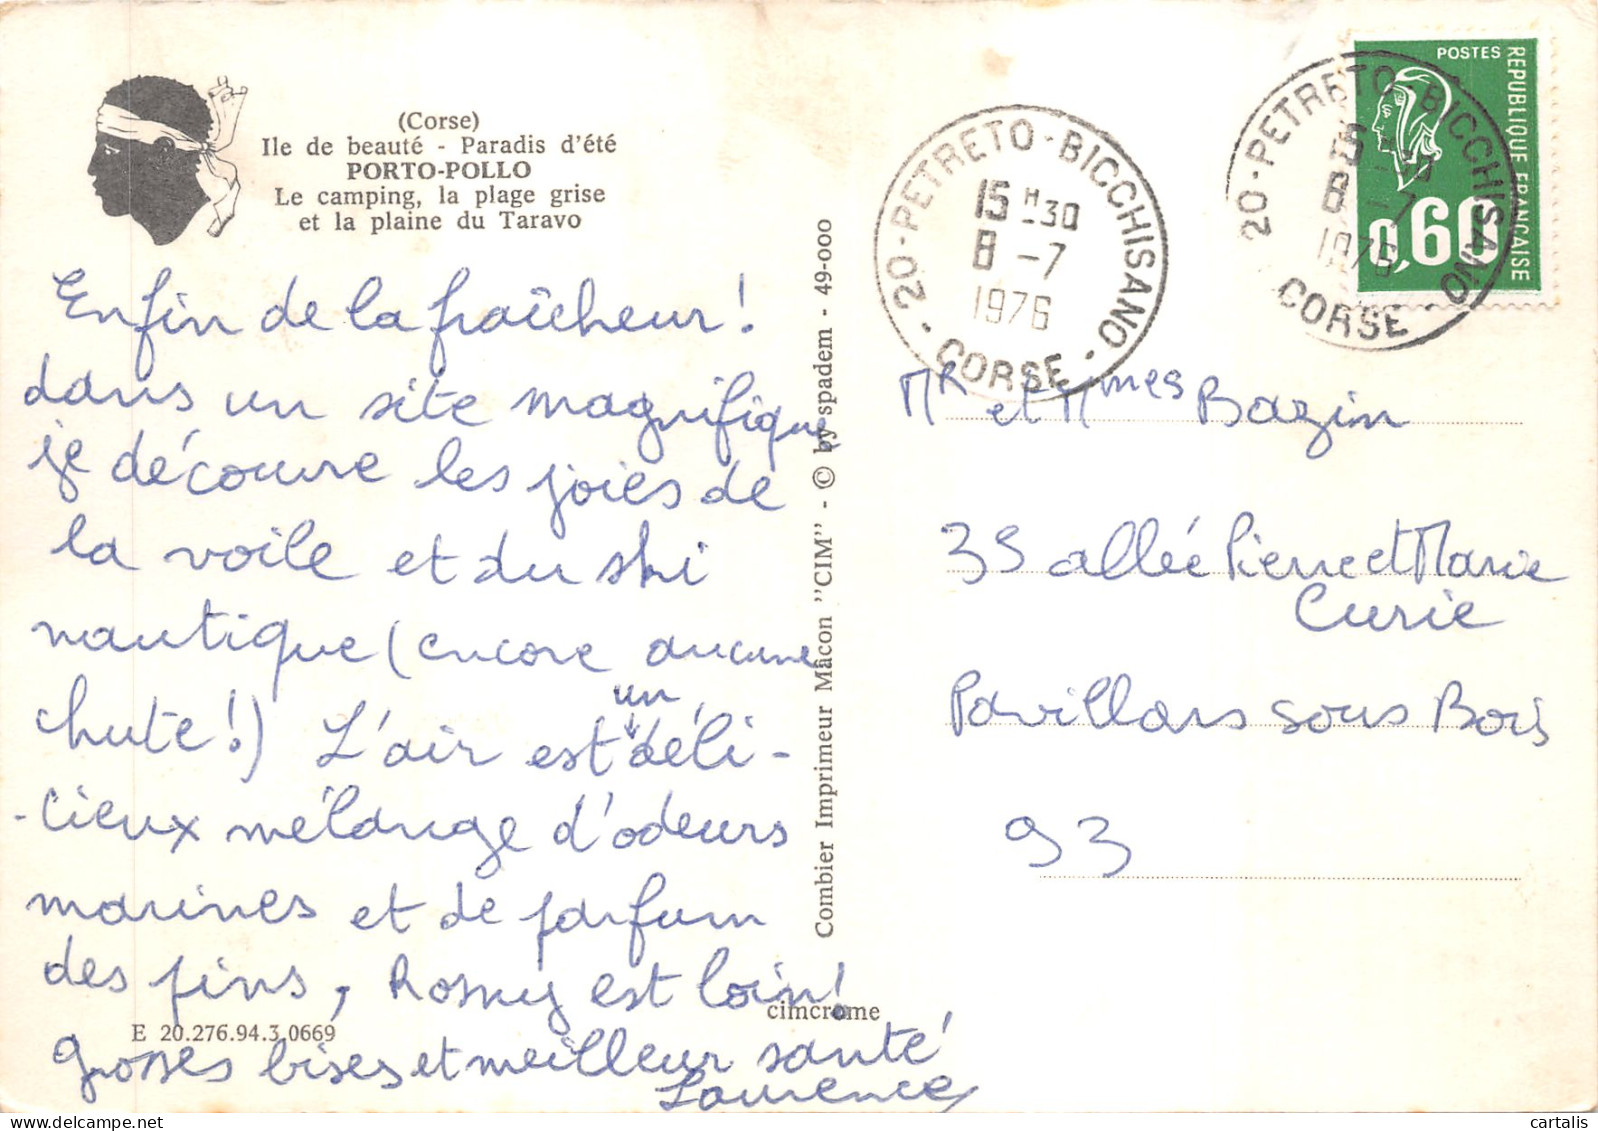 (Corse)
Ile de beauté - Paradis d'été
PORTO-POLLO
Le camping, la plage grise
et la plaine du Taravo
Enfin de la fraîcheur!
dans un site magnifique
je découvre les joies de
la voile et du ski
nautique (encore aucune
chute!) L'air est un déli-
-cieux mélange d'odeurs
marines et de parfum
des pins, Rosny est loin!
E 20.276.94.3.0669
cimcrome
Grosses bises et meilleur santé
Laurence
Combier Imprimeur Mâcon "CIM" - © by spadem - 49-000
20-PETRETO-BICCHISANO
15 H-30
8 -7
1976
CORSE
20-PETRETO-BICCHISANO
15 H-30
8 -7
1976
CORSE
POSTES
REPUBLIQUE FRANÇAISE
0,60
Mr et Mmes Bazin
35 allée Pierre et Marie
Curie
Pavillons sous Bois
93
cartalis